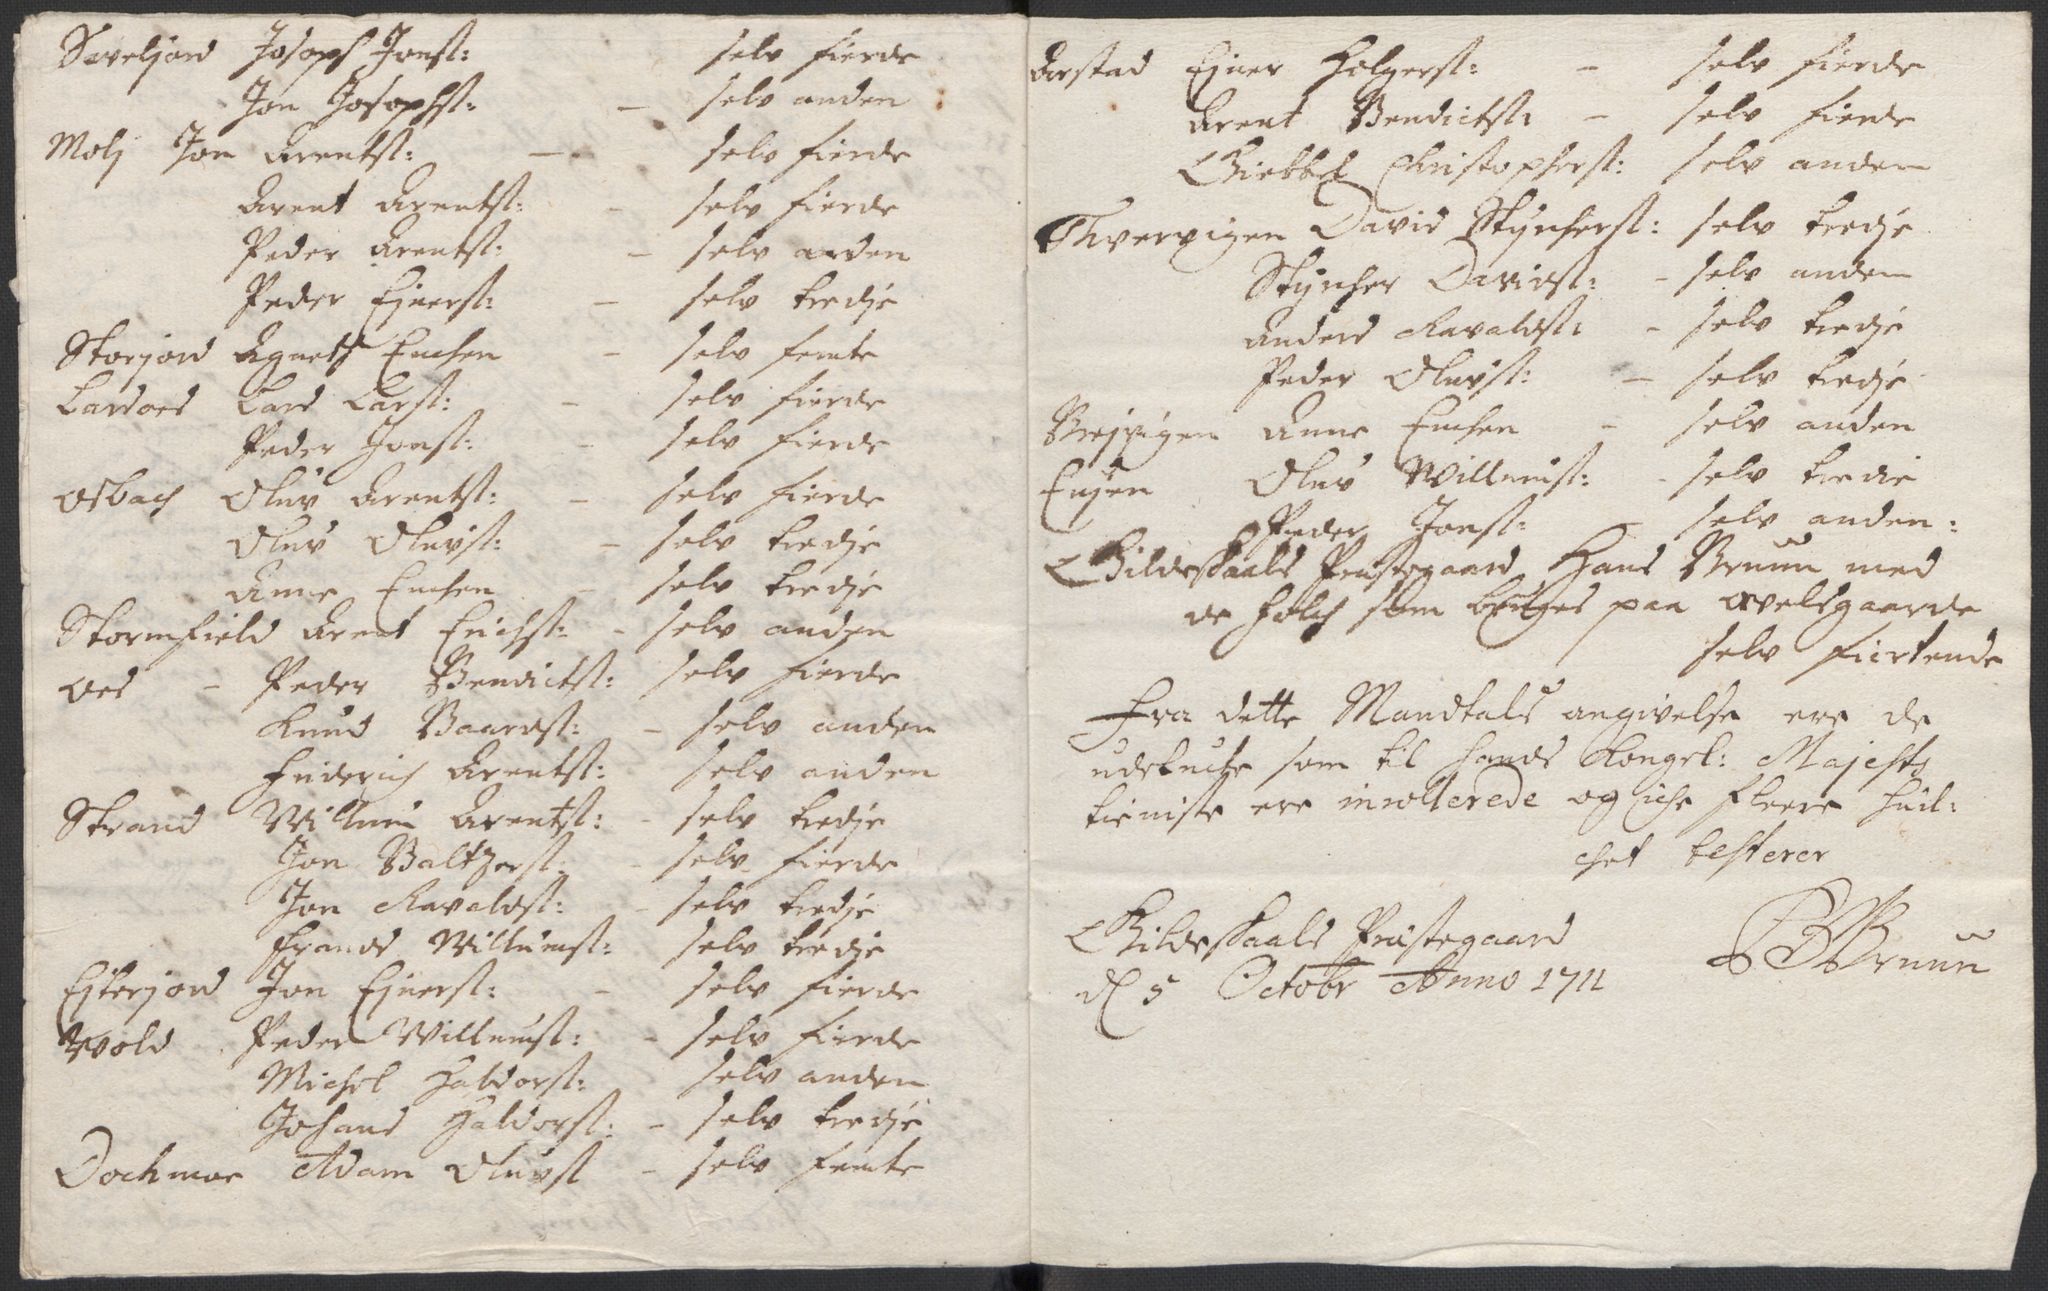 Sveljord Joseph Jonst: selv fierde
Jon Josephst: – selv anden
Molj Jon Arentst: – selv fierde
Arent Arentst: – selv fierde
Peder Arentst: – selv anden
Peder Ejnerst: – selv tredje
Storjord Agneth Enchen – selv femte
Lars Larst: – selv fierde
Peder Jonst: – selv fierde
Osbach Oluv Arentst: – selv fierde
Oluv Oluvst: – selv tredje
Anne Enchen – selv tredje
Stormfield Arent Erichst: – selv anden
Oes – Peder Bendictst: selv fierde
Knud Baardst: – selv anden
Friderich Arentst: selv anden
Strand Willum Arentst: – selv tredje
Jon Baltzerst: – selv fierde
Jon Ravaldst: – selv tredje
Frands Willumst: selv tredje
Ejterjord Jon Ejnerst: – selv fierde
Wold Peder Willumst: – selv fierde
Michel Haldorst: selv anden
Johans Haldorst: – selv tredje
Dochmoe Adam Oluvst – selv femte
Arstad Ejner Holgerst: – selv fierde
Arent Bendictst: – selv fierde
Giebbel Christopherst: selv anden
Thvervigen David Stÿncherst: selv tredje
Stÿncher Davidst: – selv anden
Anders Ravaldst: – selv tredje
Peder Oluvst: – selv tredje
Brejvigen Anne Enchen – selv anden
Engen Oluv Willumst: – selv tredie
Peder Jonst: selv anden:
Gildeskaals Præstegaard Hans Bruun med
de folch som bruges paa avelsgaarde
selv fiortende
Fra dette Mandtals angivelse ere de
udelucte som til hands Kongel: Majests
tieniste ere inrollerede og iche fleere hvil:
chet testerer
Gildeskaals Præstegaard
d 5 Octobr Anno 1711
HBruun